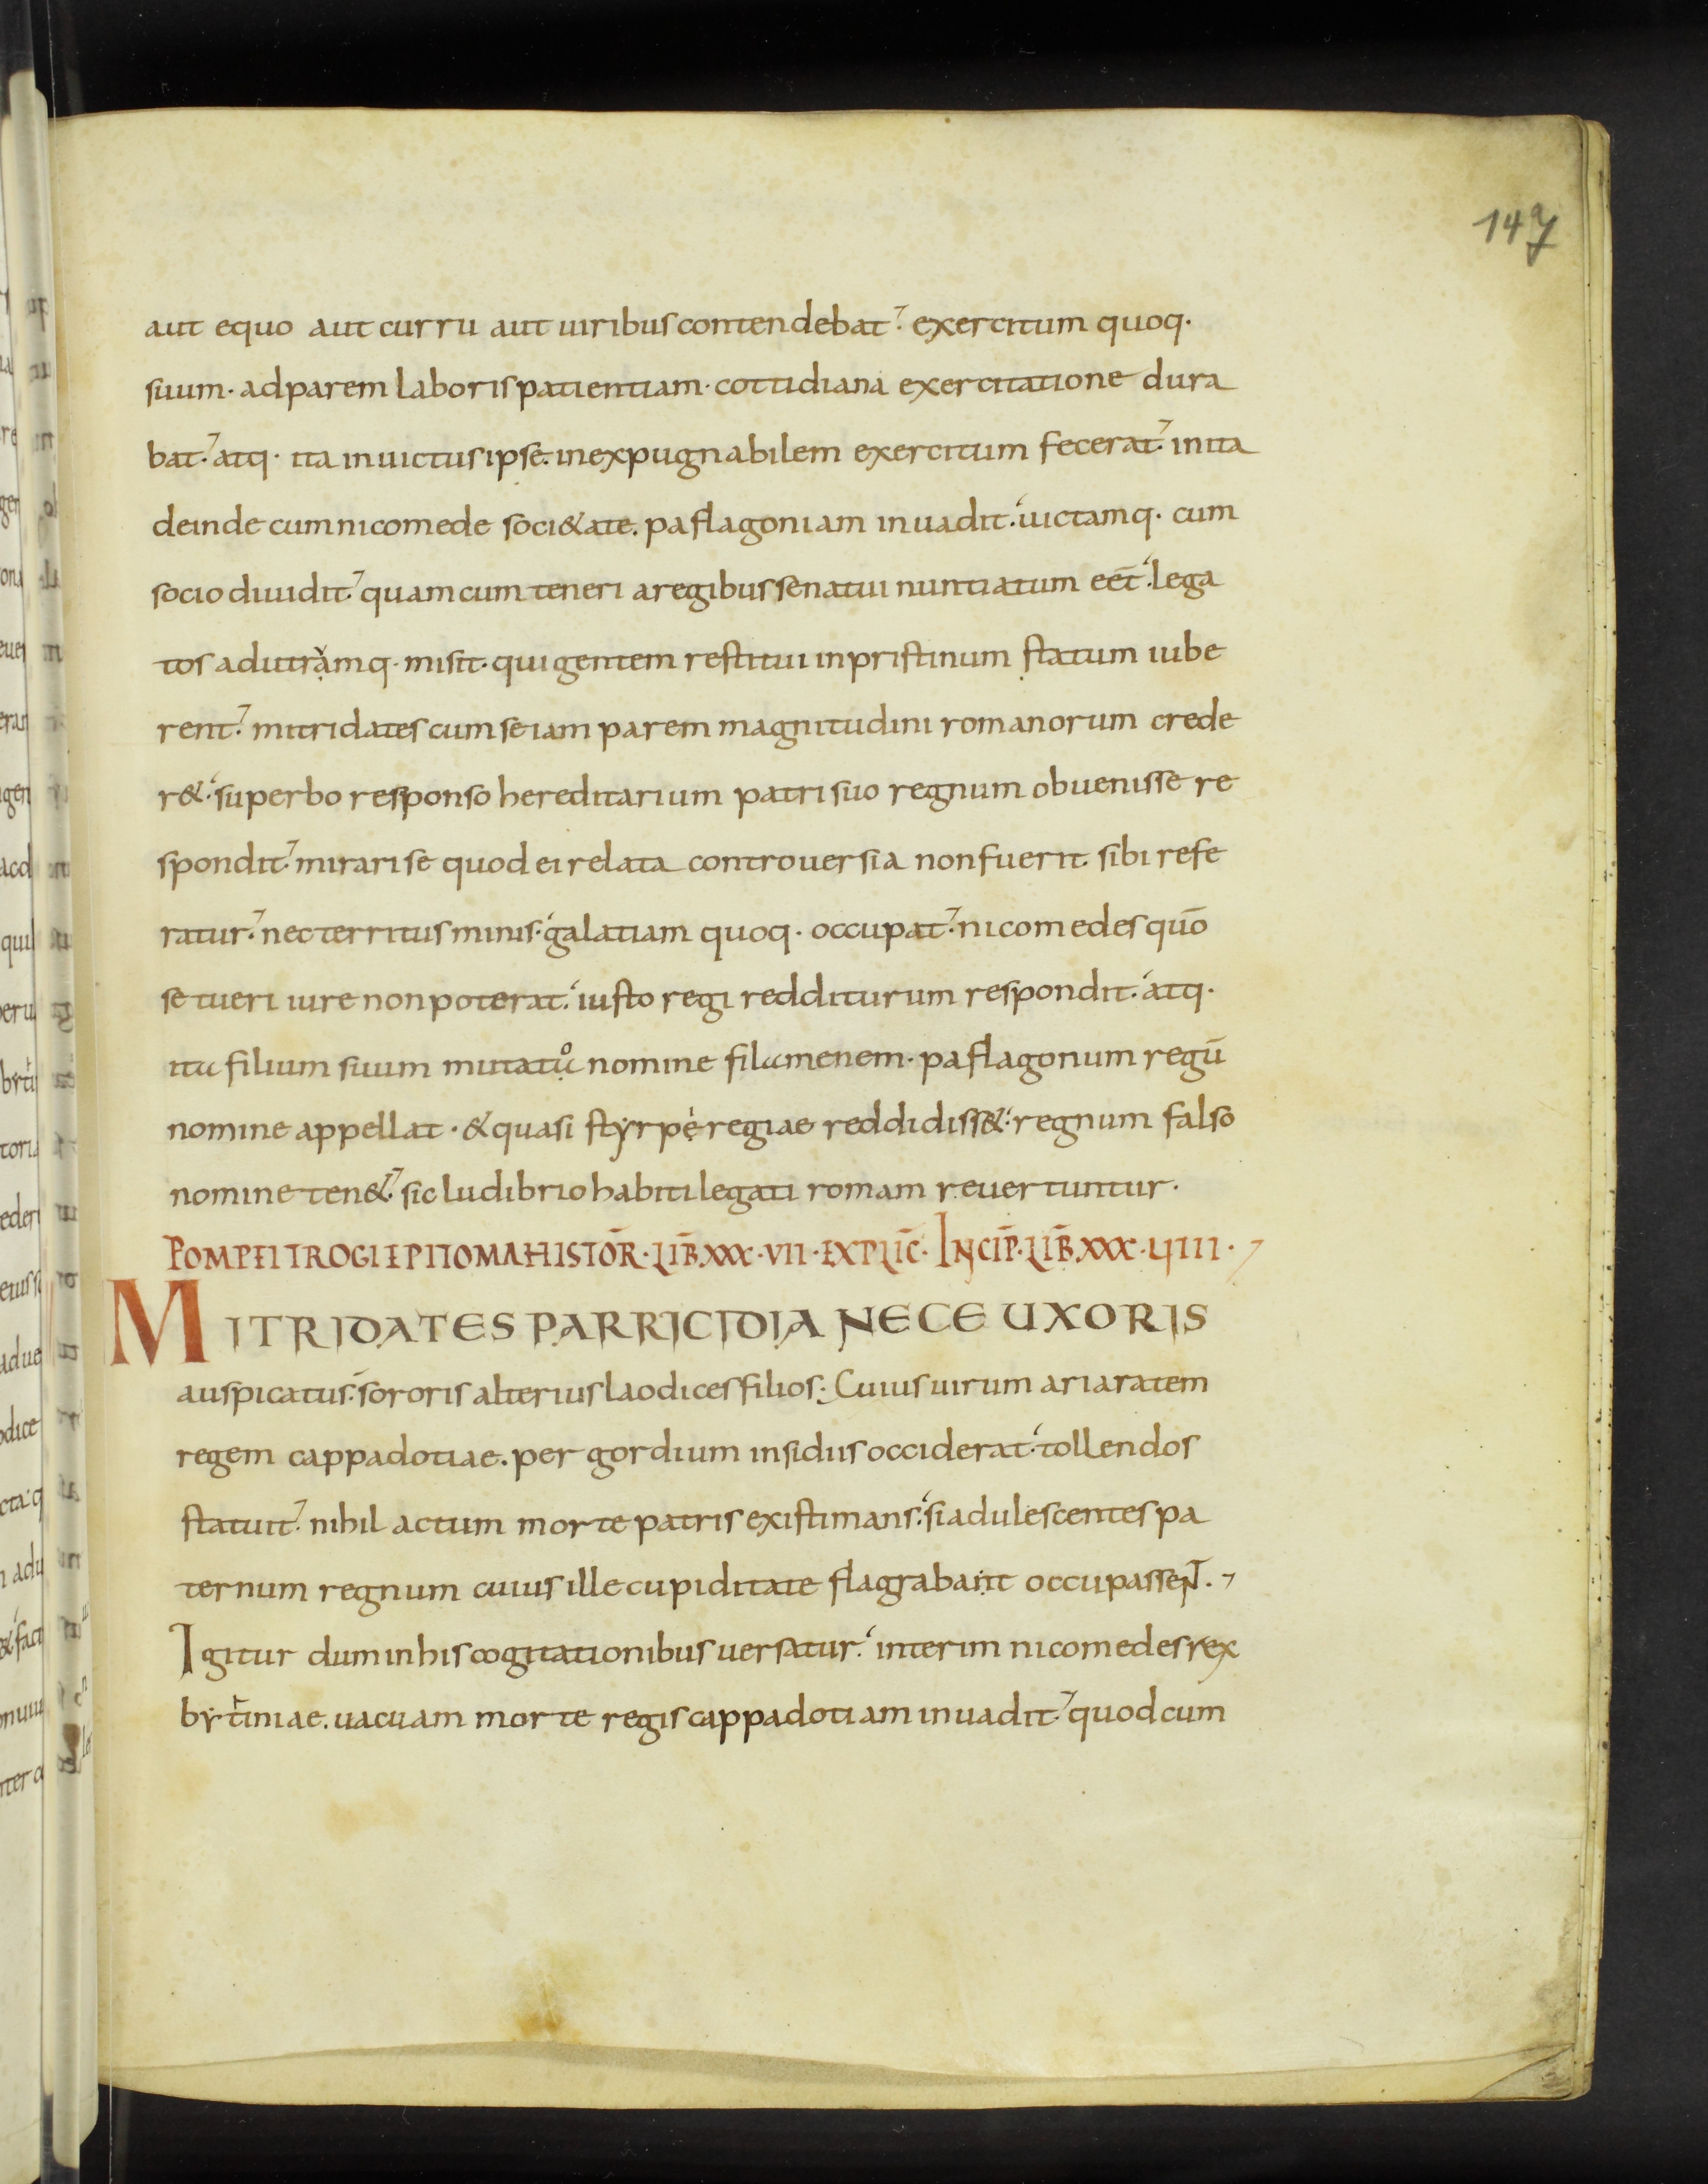 147
aut equo aut curru aut uiribus contendebat. exercitum quoq·
suum· ad parem laboris patientiam· cottidiana exercitatione dura
bat. atq· ita inuictus ipse. inexpugnabilem exercitum fecerat. inita
deinde cum nicomede soci&ate. paflagoniam inuadit. uictamq· cum
socio diuidit. quam cum teneri a regibus senatui nuntiatum eēt. lega
tos ad utramq· misit· qui gentem restitui in pristinum statum iube
rent. mitridates cum se iam parem magnitudini romanorum crede
r&. superbo responso hereditarium patri suo regnum obuenisse re
spondit. mirari se quod ei relata controuersia non fuerit. sibi refe
ratur. nec territus minis. galatiam quoq· occupat. nicomedes quō
se tueri iure non poterat. iusto regi redditurum respondit. atq·
ita filium suum mutatu nomine filamenem· paflagonum regū
nomine appellat· & quasi styrpe regiae reddidiss&. regnum falso
nomine ten&. sic ludibrio habiti legati romam reuertuntur.
POMPEI TROGI EPITOMA HISTOR̄· LIB̄ XXX·VII· EXPLIC̄· INCIP̄· LIB̄ XXX·VIII·
MITRIDATES PARRICIDIA NECE UXORIS
auspicatus. sororis alterius laodices filios. Cuius uirum ariaratem
regem cappadotiae. per gordium insidiis occiderat. tollendos
statuit. nihil actum morte patris existimans. si adulescentes pa
ternum regnum cuius ille cupiditate flagrabant occupassent.
Igitur dum in his cogitationibus uersatur. interim nicomedes rex
bytiniae. uacuam morte regis cappadotiam inuadit. quod cum